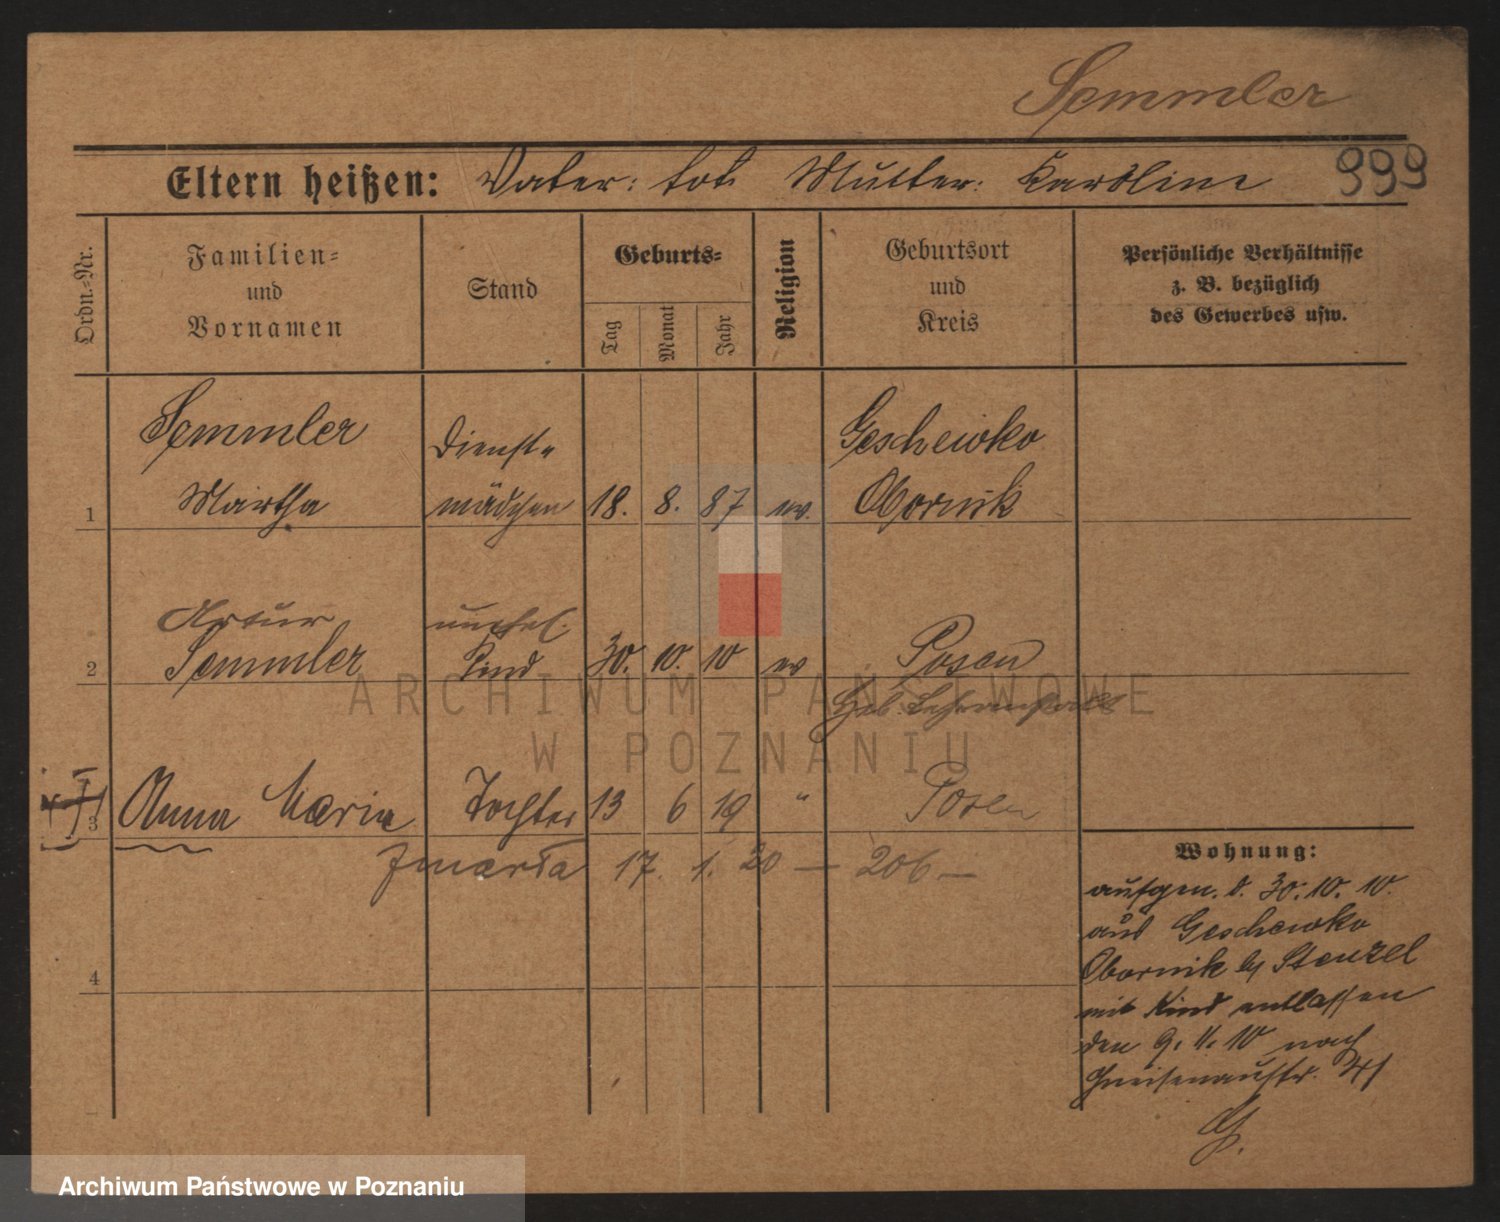 Semmler
Eltern heißen: Vater: tot Mutter: Karoline 999
Ordn.-Nr.
Familien-
und
Vornamen
Stand
Geburts-
Tag
Monat
Jahr
Religion
Geburtsort
und
Kreis
Persönliche Verhältnisse
z. B. bezüglich
des Gewerbes usw.
Semmler Dienst- Geschewko
1 Martha mädchen 18. 8. 87 ev. Obornik
Artur unehel.
2 Semmler Kind 30. 10. 10 ev Posen
Heb. Lehranstalt
3 Anna Maria Tochter 13 6 19 " Posen
zmarła 17. 1. 20 — 206 —
4
Wohnung:
aufgen. d. 30. 10. 10.
aus Geschewko
Obornik by Stenzel
mit Kind entlassen
den 9. 11. 10 nach
Gneisenaustr.
ARCHIWUM PAŃSTWOWE
W POZNANIU
Archiwum Państwowe w Poznaniu